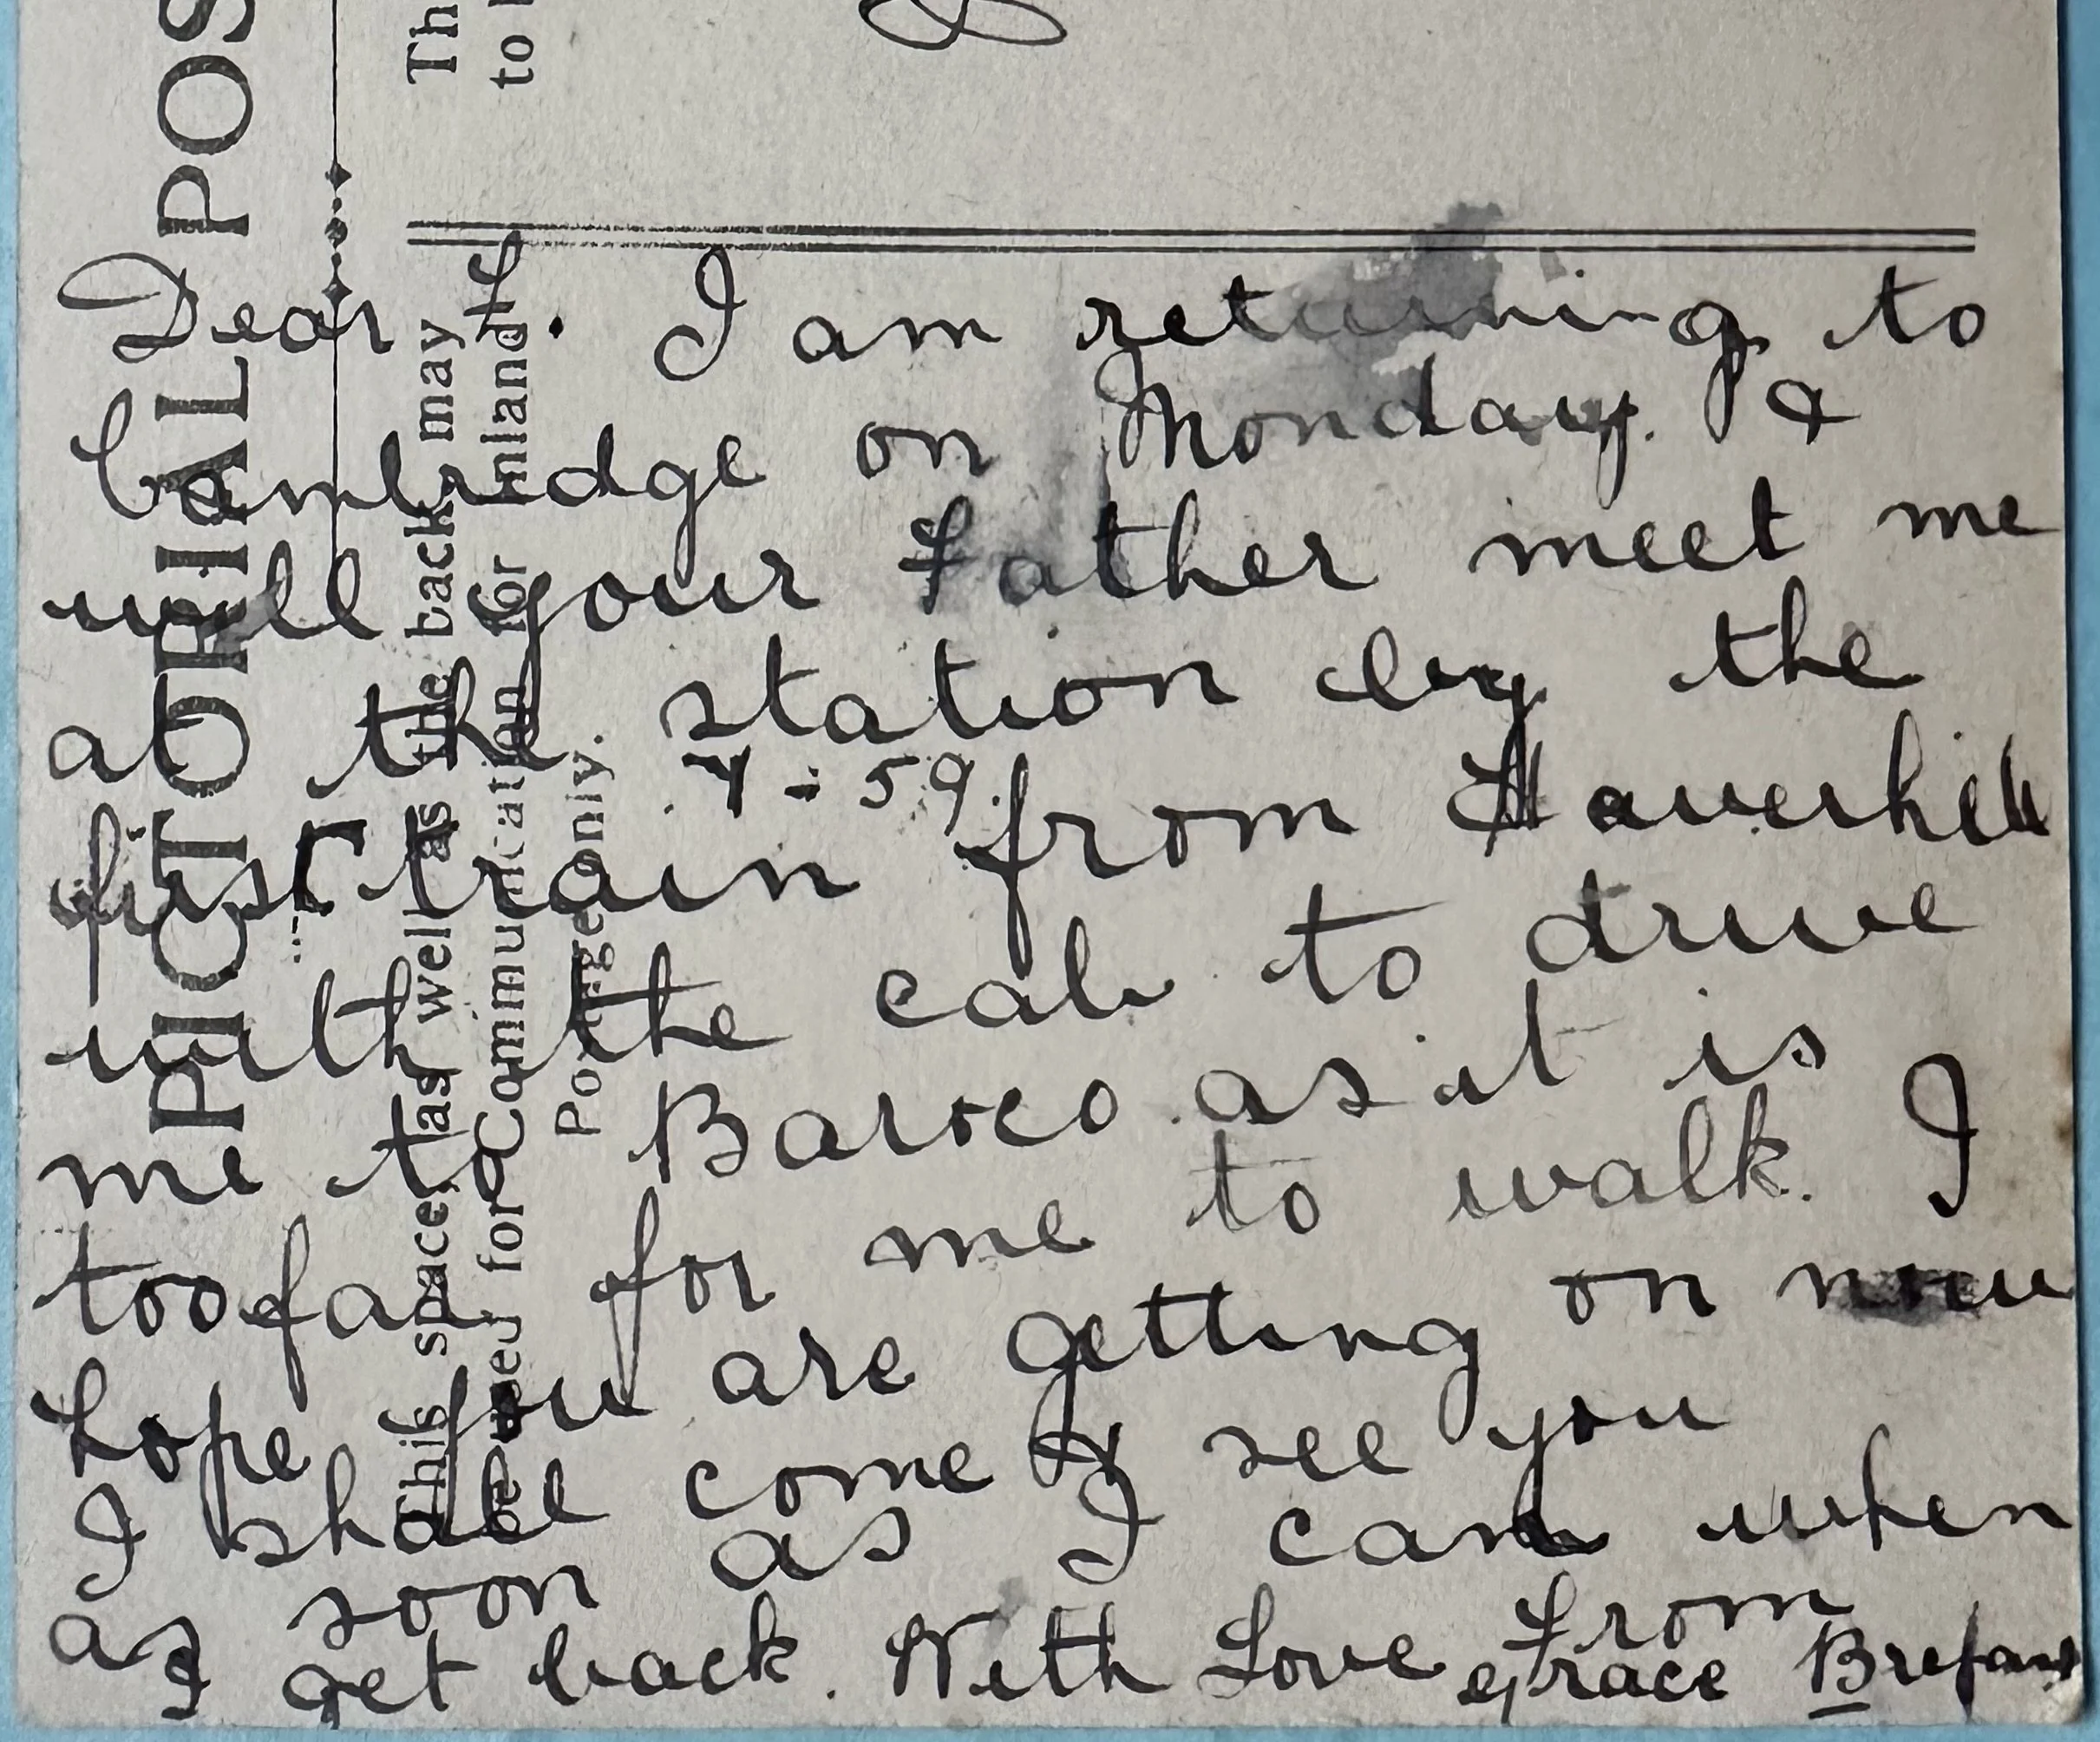 PICTORIAL POS
This space, as well as the back may
be used for Communication for Inland
Postage only.
Th
to
Dear F. I am returning to
Cambridge on Monday. &
will your Father meet me
at the station by the
4-59
first train from Haverhill
with the cab to drive
me to as it is
too far for me to walk. I
hope you are getting on now
I shall come & see you
as soon as I can when
I get back. With Love From
Grace